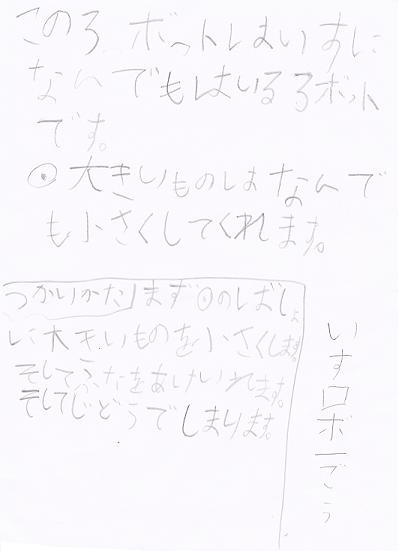 このろボットはいすに
なんでもはいるろボット
です。
⦿大きいものはなんで
も小さくしてくれます。
つかいかた まず⦿のばしょ
に大きいものを小さくします。
そしてふたをあけいれます。
そしてじどうでしまります。
いすロボ一ごう